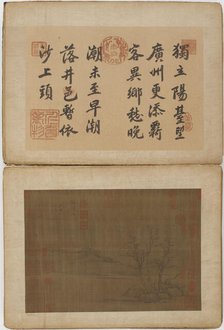 獨立陽臺望
廣州更添羇
客異鄉愁晚
潮未至早潮
落井邑暫依
沙上頭